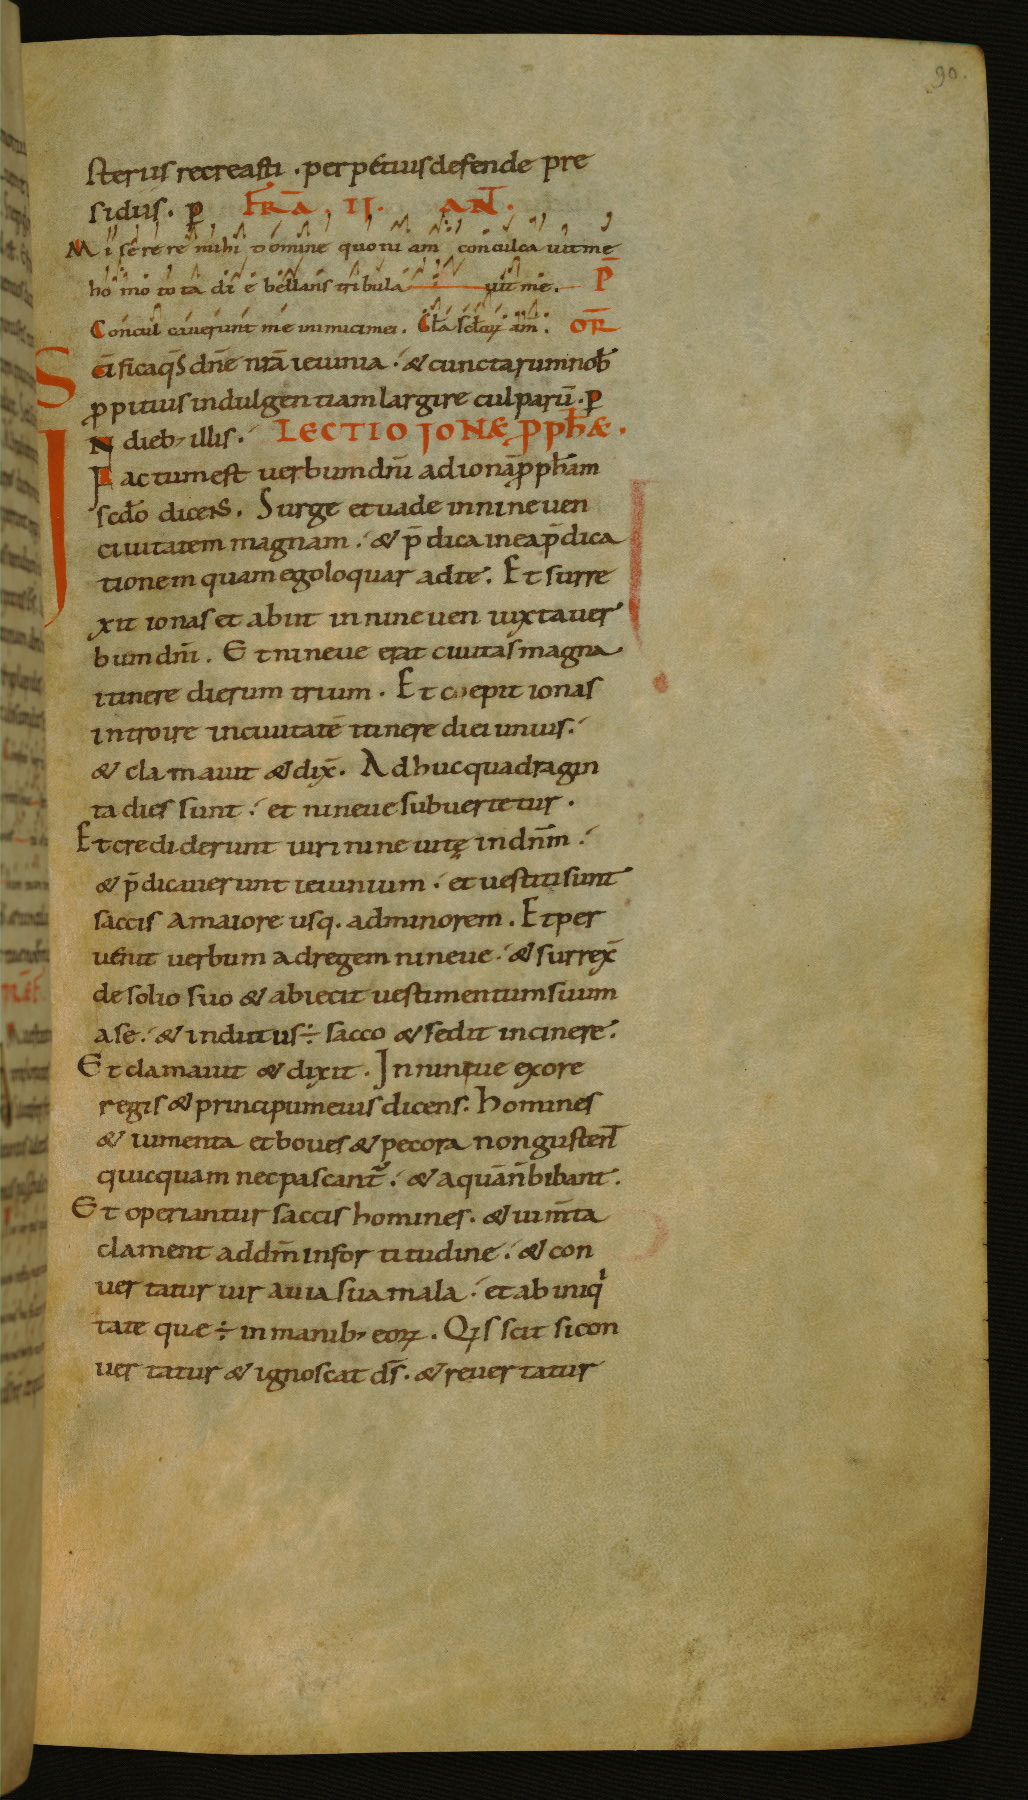 90.
sterus recreasti . perpetuis defende pre
sidiis. p̄ FR̄A . II. AN̄.
Miserere mihi domine quoniam conculcavit me
homo tota die bellans tribulavit me. P̄
Conculcaverunt me inimici mei. Cl̄a sc̄loꝝ am̄. OR̄
Sc̄ificaq̄s dn̄e nr̄a ieiunia . & cunctarum nob̄
ꝓpitius indulgentiam largire culparū. p̄
IN dieb; illis. LECTIO IONÆ PꝒPHÆ.
Factum est verbum dn̄i ad ionā ꝓph̄am
scd̄o dicens. Surge et vade in nineven
civitatem magnam . & p̄dica in ea p̄dica
tionem quam ego loquar ad te. Et surre
xit ionas et abiit in nineven iuxta ver
bum dn̄i. Et nineve erat civitas magna
itinere dierum trium. Et coepit ionas
introire in civitatē itinere diei unius.
& clamavit & dix̄. Adhuc quadragin
ta dies sunt . et nineve subvertetur.
Et crediderunt viri ninevitę in dn̄m .
& p̄dicaverunt ieiunium . et vestiti sunt
saccis a maiore usq. ad minorem. Et per
venit verbum ad regem nineve . & surrex̄
de solio suo & abiecit vestimentum suum
a se . & indutus ÷ sacco & sedit in cinere.
Et clamavit & dixit. In ninive ex ore
regis & principum eius dicens. Homines
& iumenta et boves & pecora non gusten̄t
quicquam nec pascant᷑ . & aquā n̄ bibant.
Et operiantur saccis homines . & ium̄ta
clament ad dm̄ in fortitudine . & con
vertatur vir a via sua mala . et ab iniqⁱ
tate que ÷ in manib; eoꝝ. Qⁱs scit si con
vertatur & ignoscat ds̄ . & revertatur